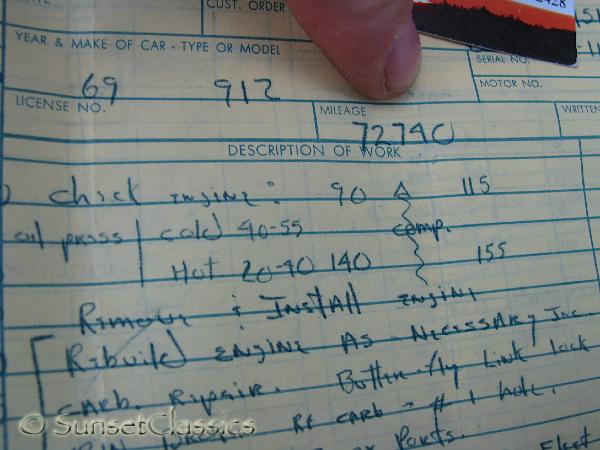 CUST. ORDER
2428
YEAR & MAKE OF CAR - TYPE OR MODEL
SERIAL NO.
69 912
MOTOR NO.
LICENSE NO.
MILEAGE
WRITTEN
72740
DESCRIPTION OF WORK
Check Engine: 90 115
oil press cold 40-55 comp.
Hot 20-40 140 155
Remove & Install Engine
Rebuild Engine As Necessary Inc.
Carb Repair. Butter-fly Link lock
Rt carb - # 1 hole.
Parts.
Elect
© SunsetClassics